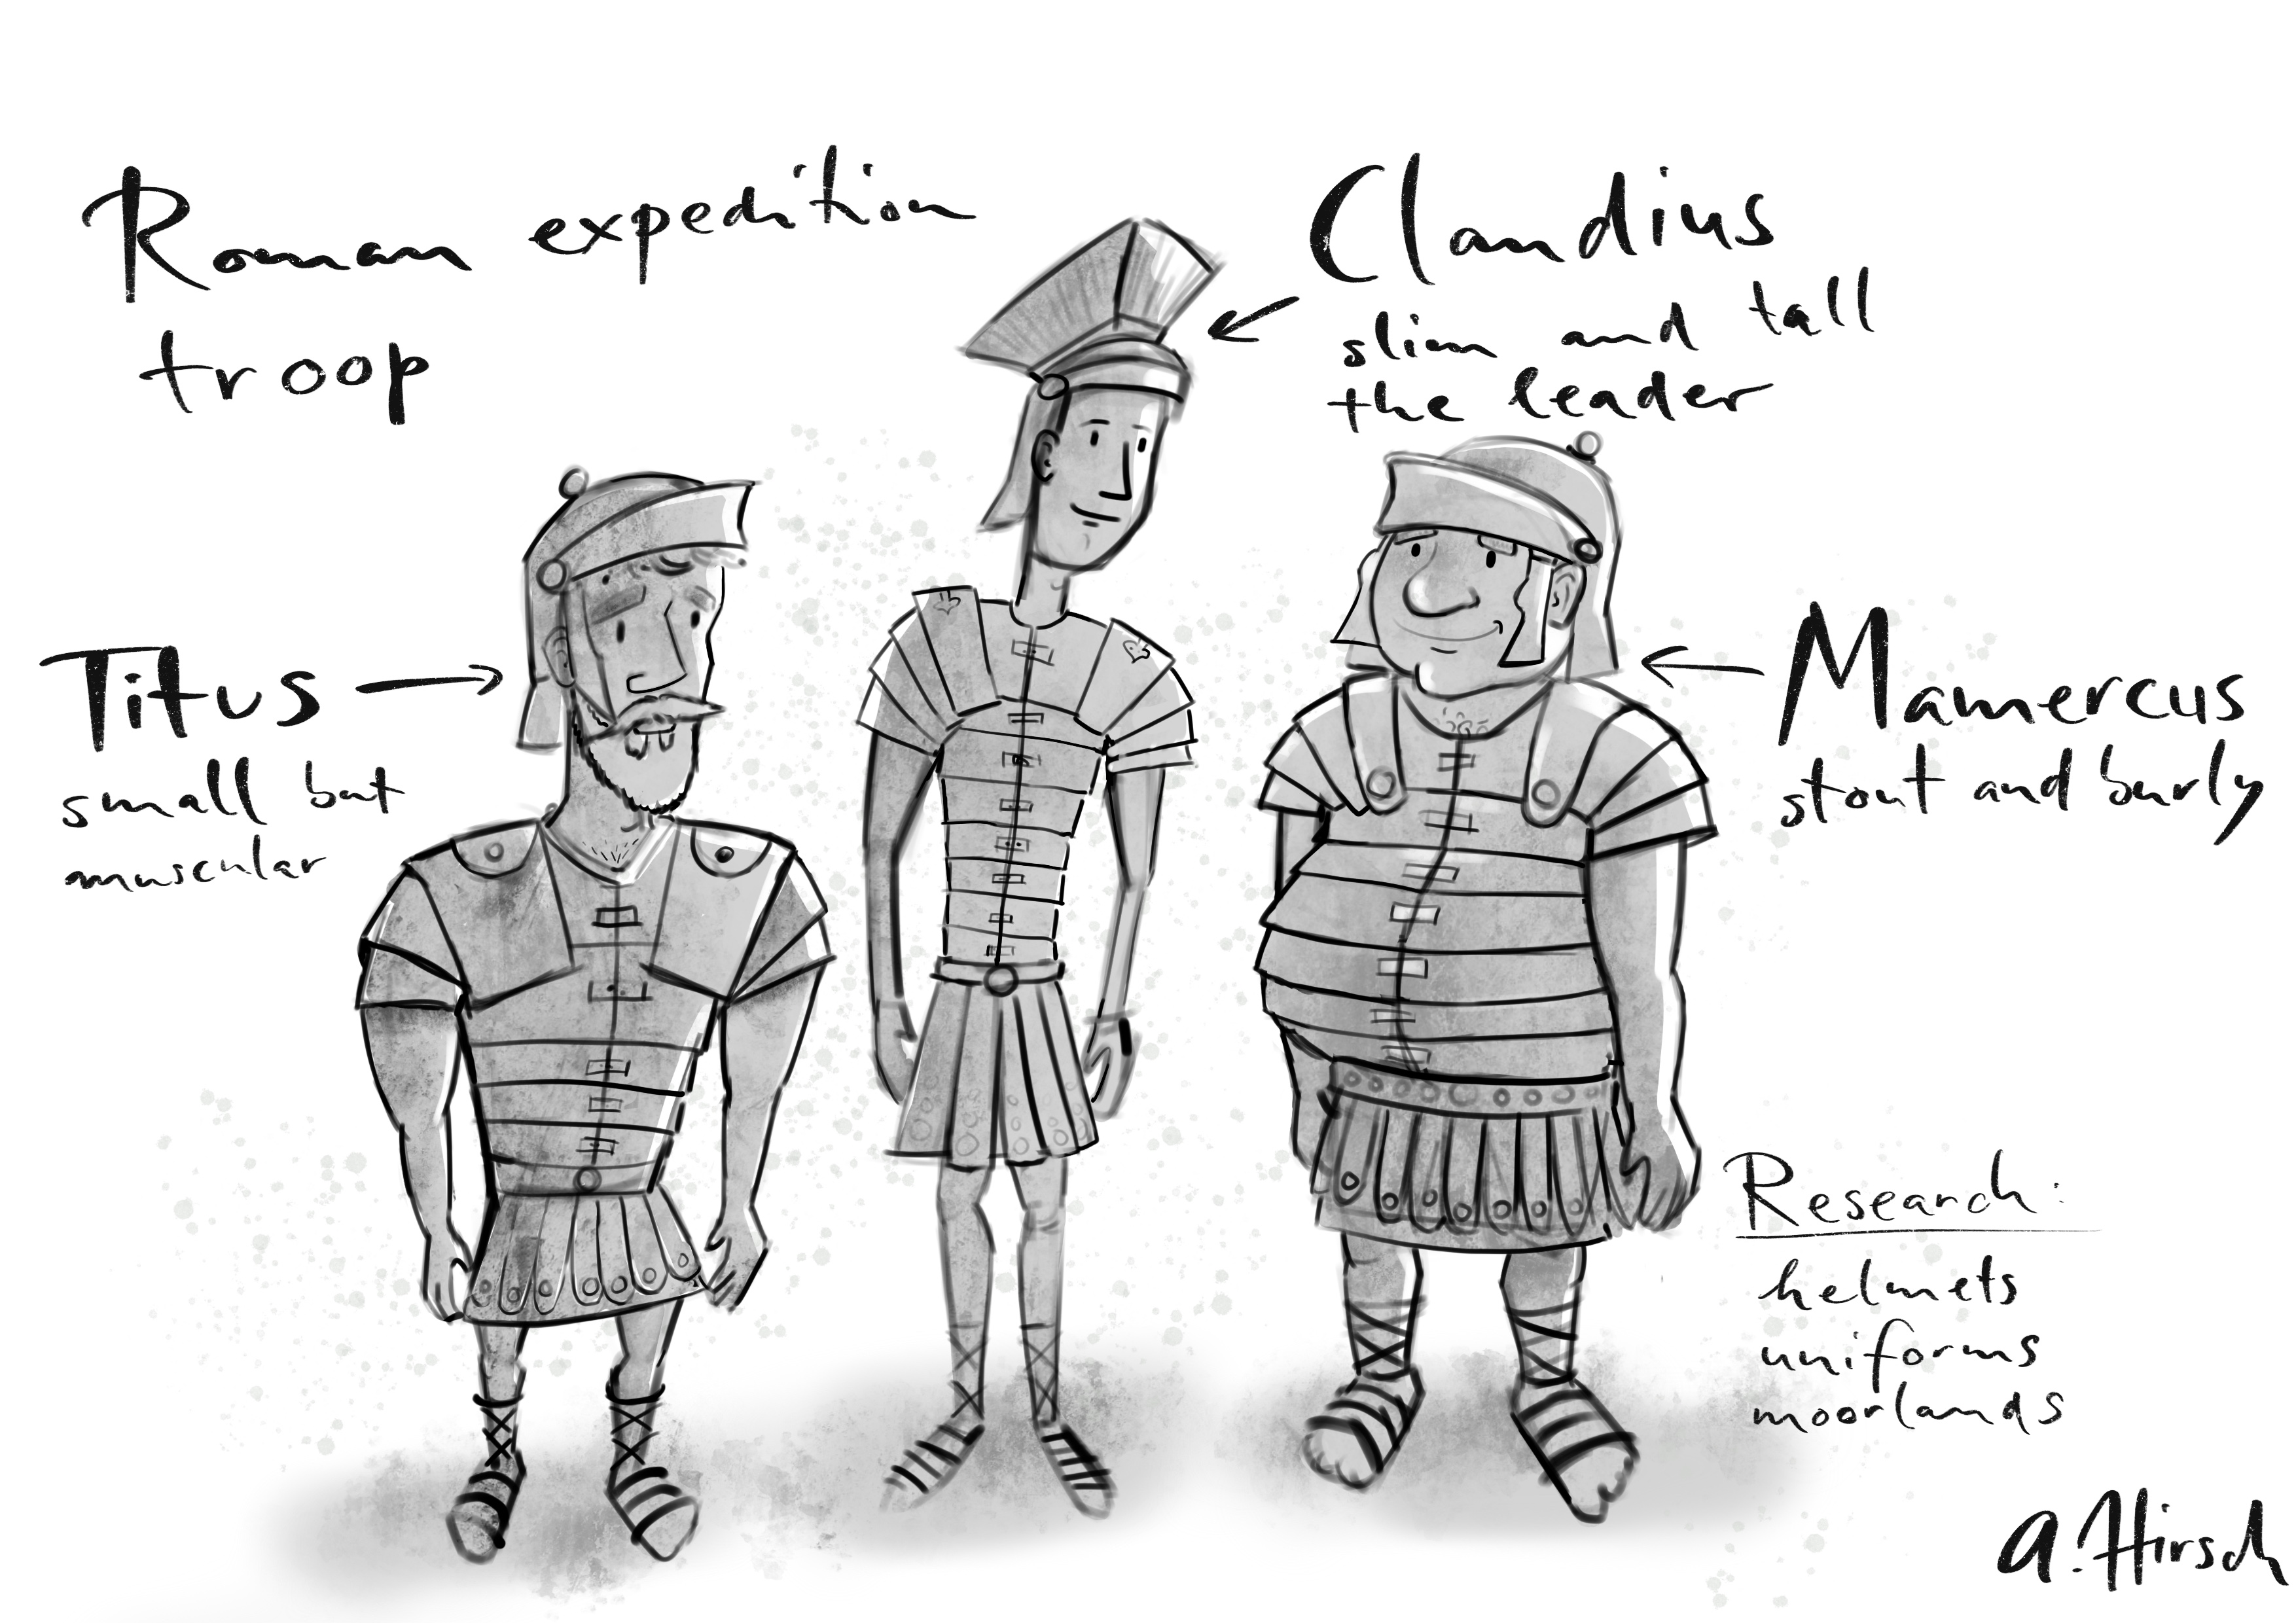 Roman expedition
troop
Claudius
slim and tall
the leader
Titus
small but
muscular
Mamercus
stout and burly
Research:
helmets
uniforms
moorlands
A. Hirsch